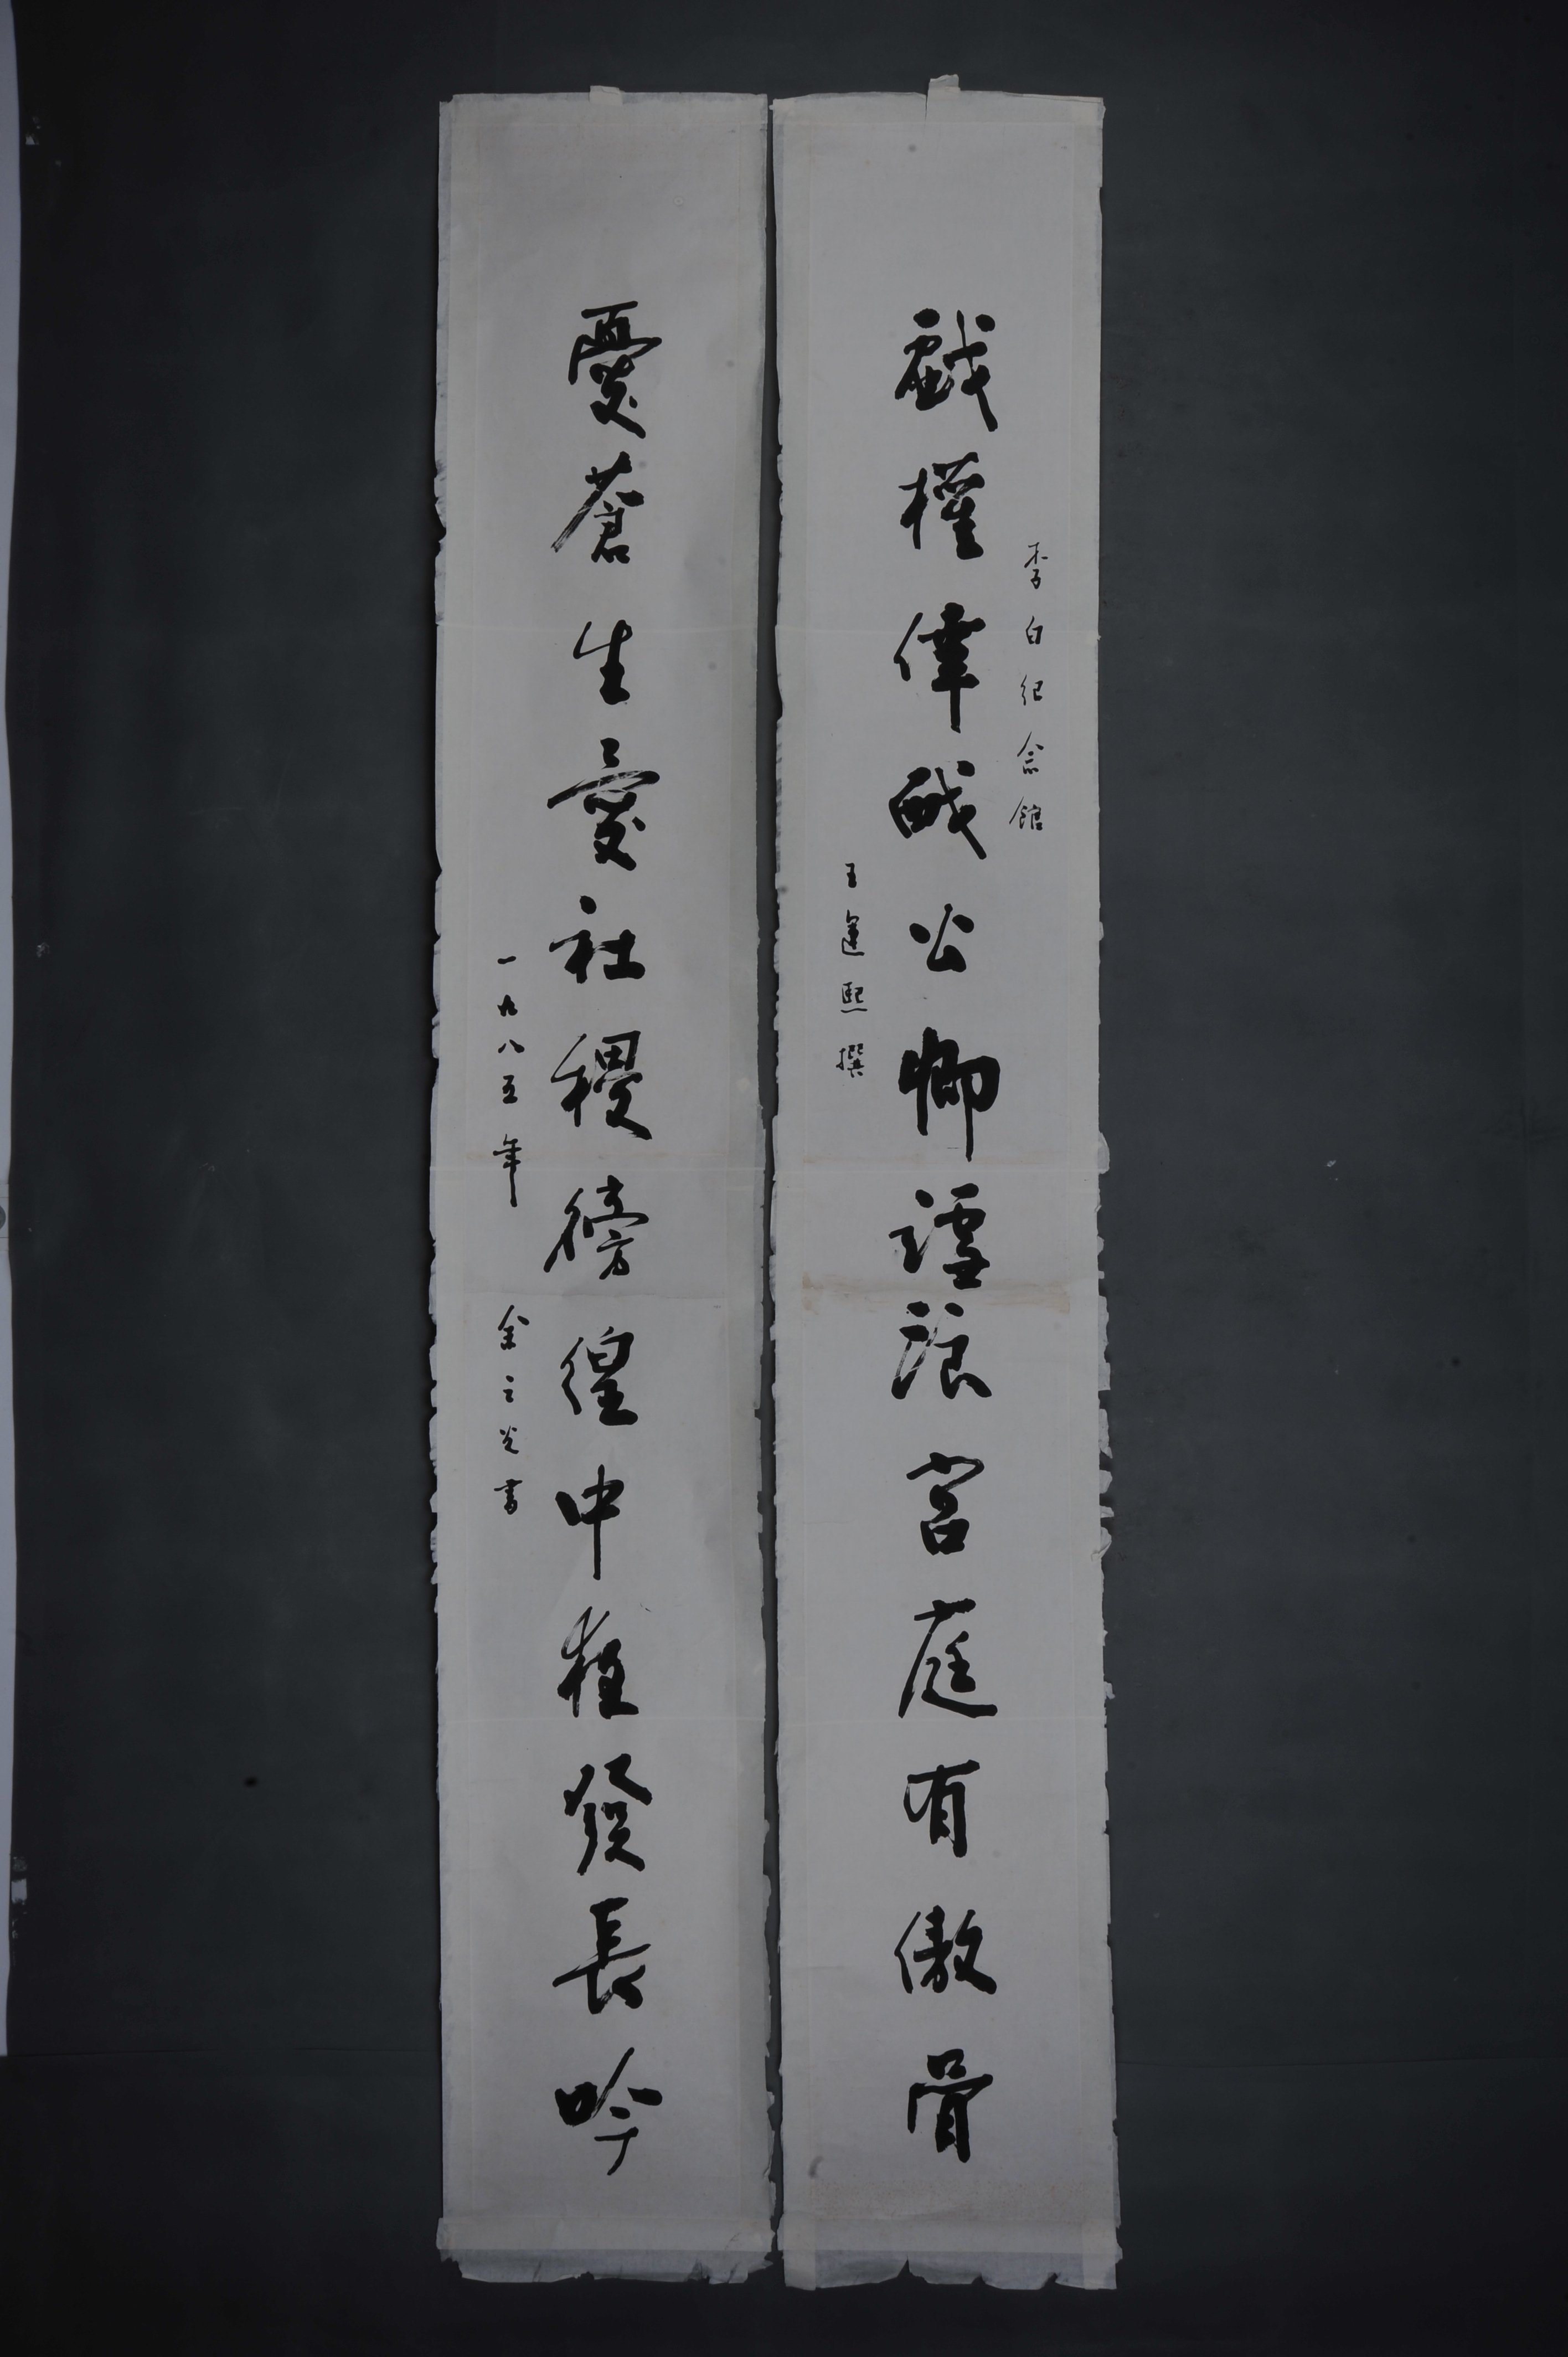 李白紀念館
戲權倖公卿謔浪宮庭有傲骨
王運熙撰
憂蒼生愛社稷徬徨中發長吟
一九八五年 金之光書